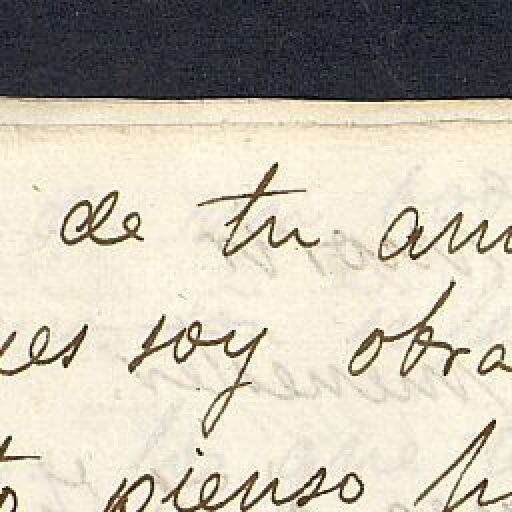 de tu am
ues soy obra
to pienso h